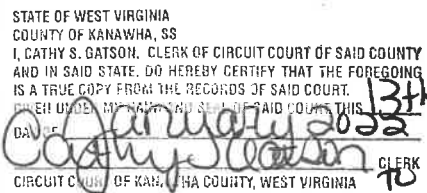 STATE OF WEST VIRGINIA
COUNTY OF KANAWHA, SS
I, CATHY S. GATSON, CLERK OF CIRCUIT COURT OF SAID COUNTY
AND IN SAID STATE, DO HEREBY CERTIFY THAT THE FOREGOING
IS A TRUE COPY FROM THE RECORDS OF SAID COURT.
GIVEN UNDER MY HAND AND SEAL OF SAID COURT THIS 13th
DAY OF January 2022
Cathy S Gatson CLERK
CIRCUIT COURT OF KANAWHA COUNTY, WEST VIRGINIA